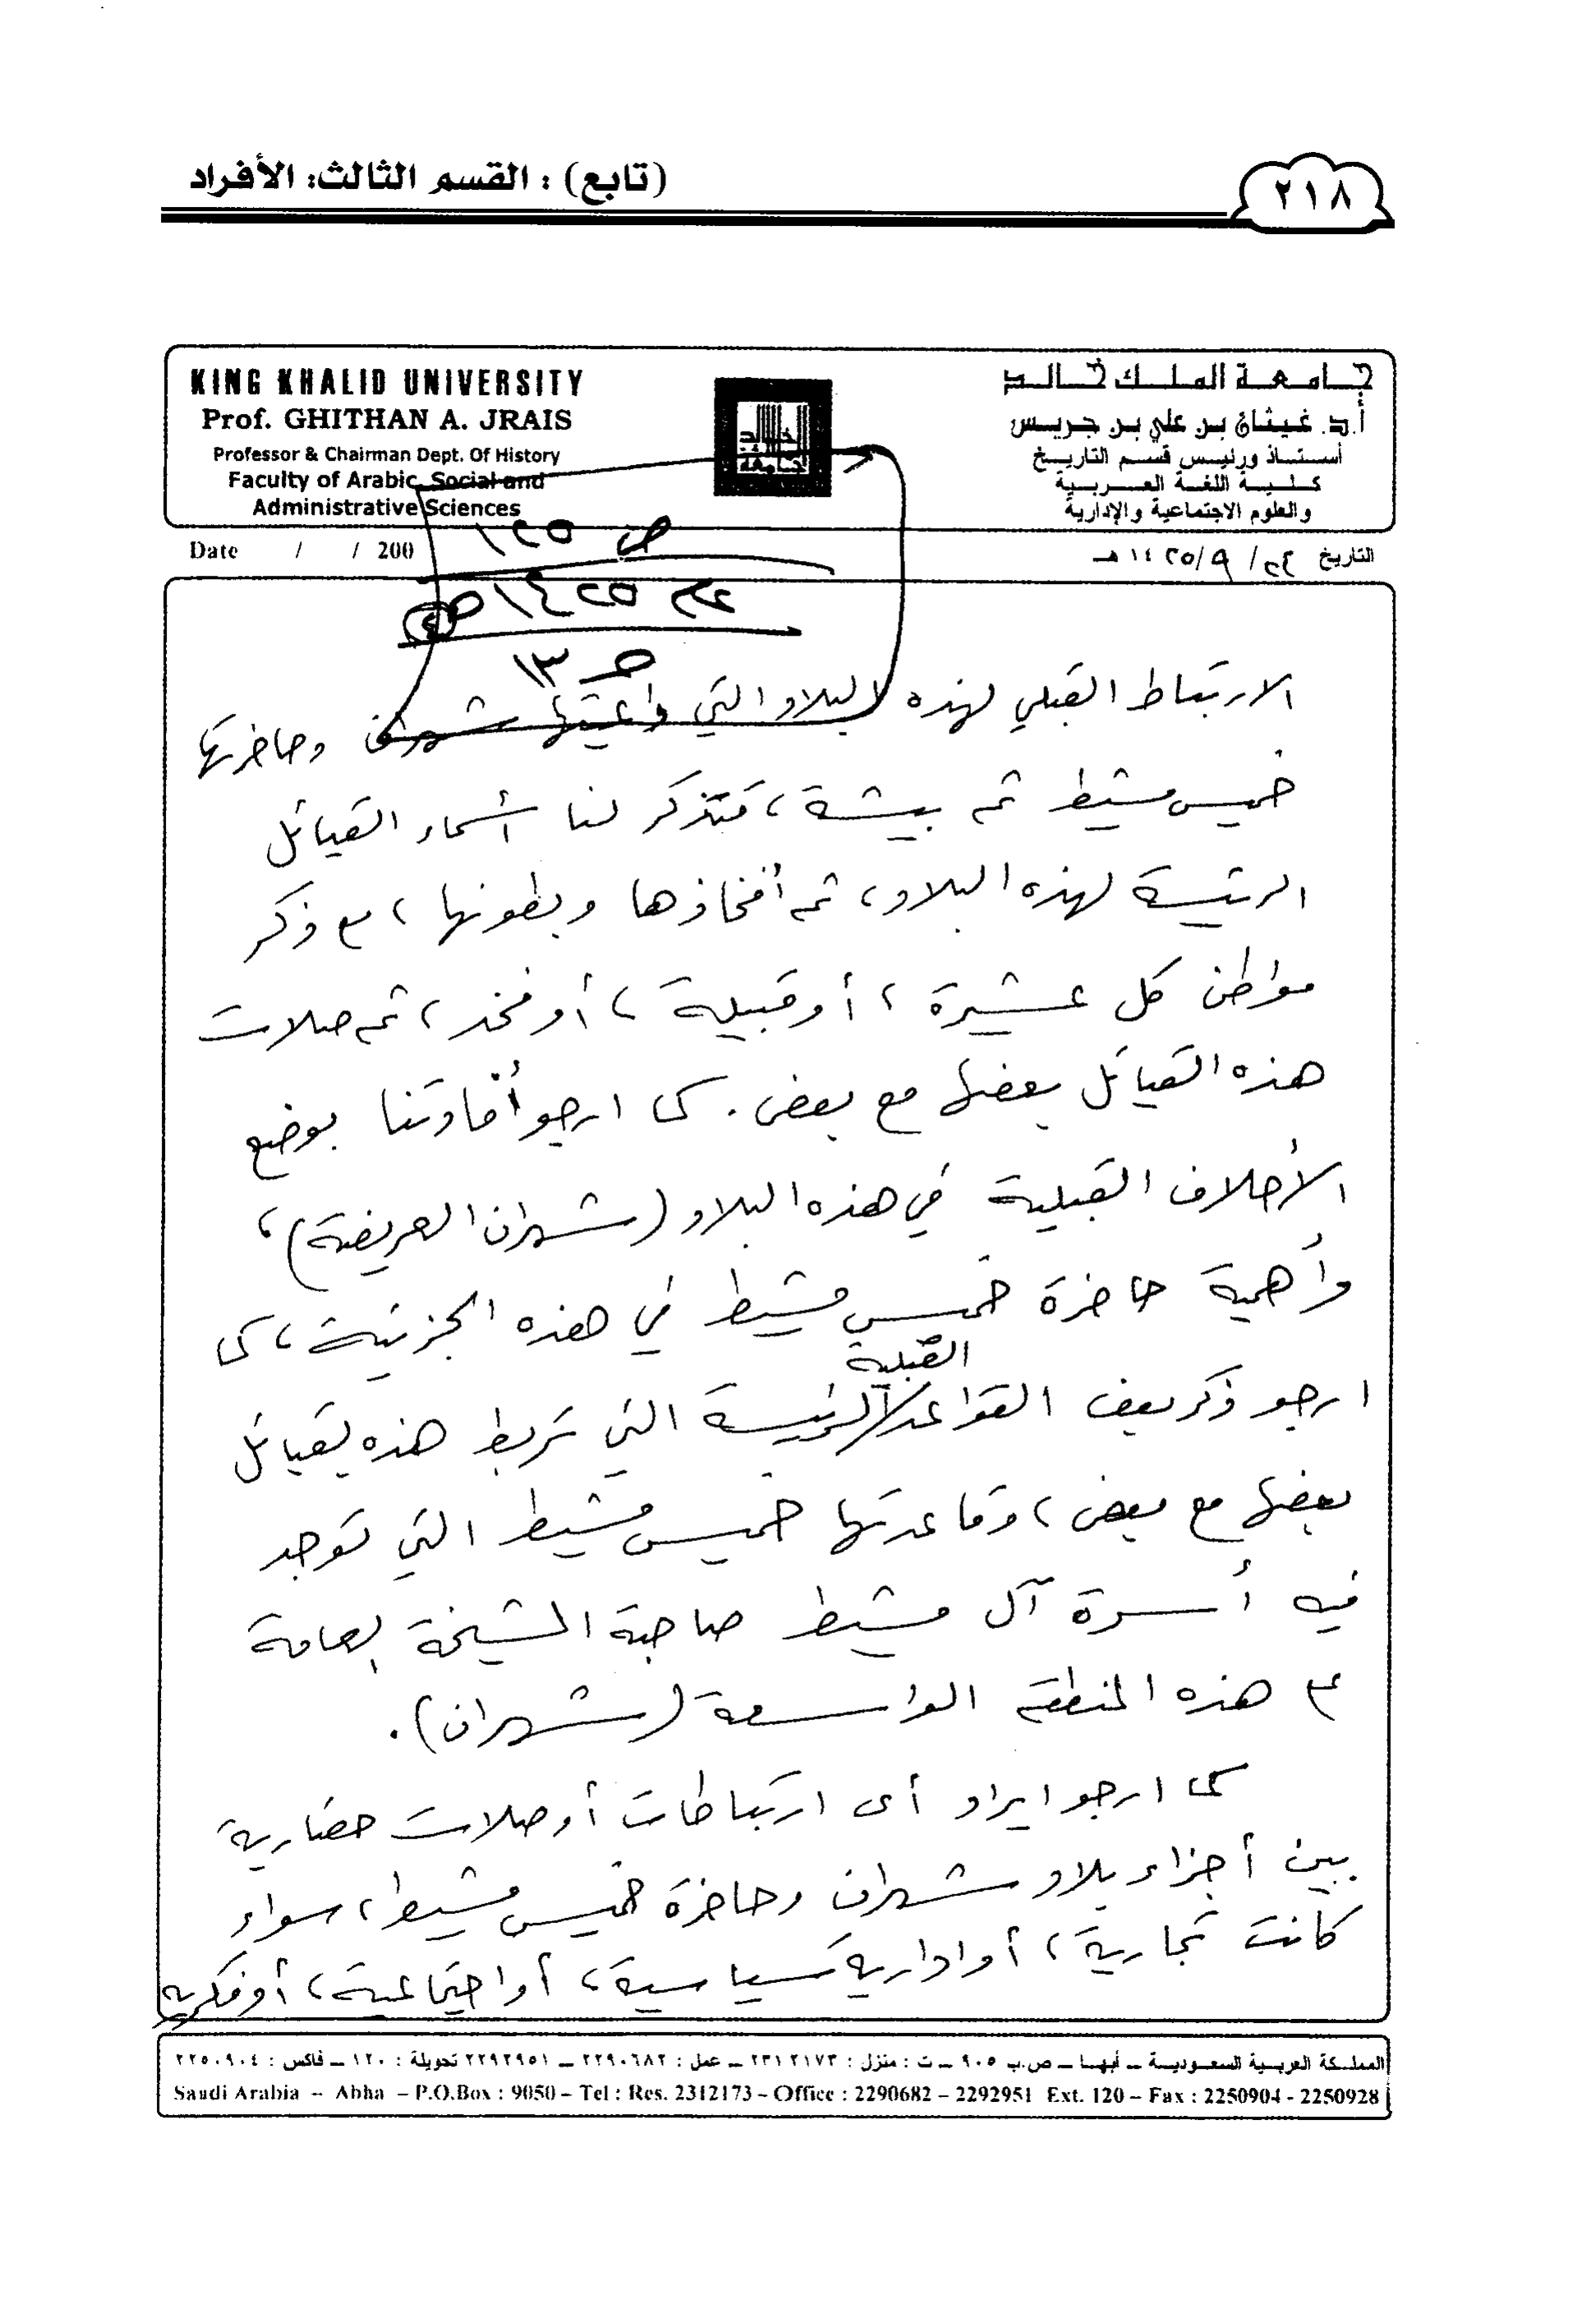 ٢١٨
(تابع) : القسم الثالث: الأفراد
KING KHALID UNIVERSITY
Prof. GHITHAN A. JRAIS
Professor & Chairman Dept. Of History
Faculty of Arabic, Social and
Administrative Sciences
جامعة الملك خالد
أ.د. غيثان بن علي بن جريس
أستاذ ورئيس قسم التاريخ
كلية اللغة العربية
والعلوم الاجتماعية والإدارية
Date / / 200
التاريخ ٢٤/ ٩/ ١٤٢٥ هـ
ص ١٢٥
عام ١٤٢٥ هـ ٤
ج ١٣
الارتباط القبلي لهذه البلاد التي شهران وحاضرتها
خميس مشيط ثم بيشة، فتذكر لنا أسماء القبائل
الرئيسة لهذه البلاد، ثم أفخاذها وبطونها، مع ذكر
مواطن كل عشيرة، أو قبيلة، أو فخذ، ثم صلات
هذه القبائل بعضها مع بعض. كما ارجو أفادتنا بوضع
الأحلاف القبلية في هذه البلاد (شهران العريضة)،
وأهمية حاضرة خميس مشيط في هذه الجزئية، كما
ارجو ذكر بعض القواعد القبلية الرئيسة التي تربط هذه القبائل
بعضها مع بعض، وقاعدتها خميس مشيط التي توجد
فيه أسرة آل مشيط صاحبة المشيخة العامة
على هذه المنطقة الواسعة (شهران).
كما ارجو ايراد أى ارتباطات أو صلات حضارية
بين أجزاء بلاد شهران وحاضرة خميس مشيط، سواء
كانت تجارية، أو ادارية سياسية، أو اجتماعية، أو فكرية
المملكة العربية السعودية – أبها – ص.ب ٩٠٥ – ت : منزل : ٢٣١٢١٧٣ – عمل : ٢٢٩٠٦٨٢ – ٢٢٩٢٩٥١ تحويلة : ١٢٠ – فاكس : ٢٢٥٠٩٠٤
Saudi Arabia – Abha – P.O.Box : 9050 – Tel : Res. 2312173 – Office : 2290682 – 2292951 Ext. 120 – Fax : 2250904 - 2250928